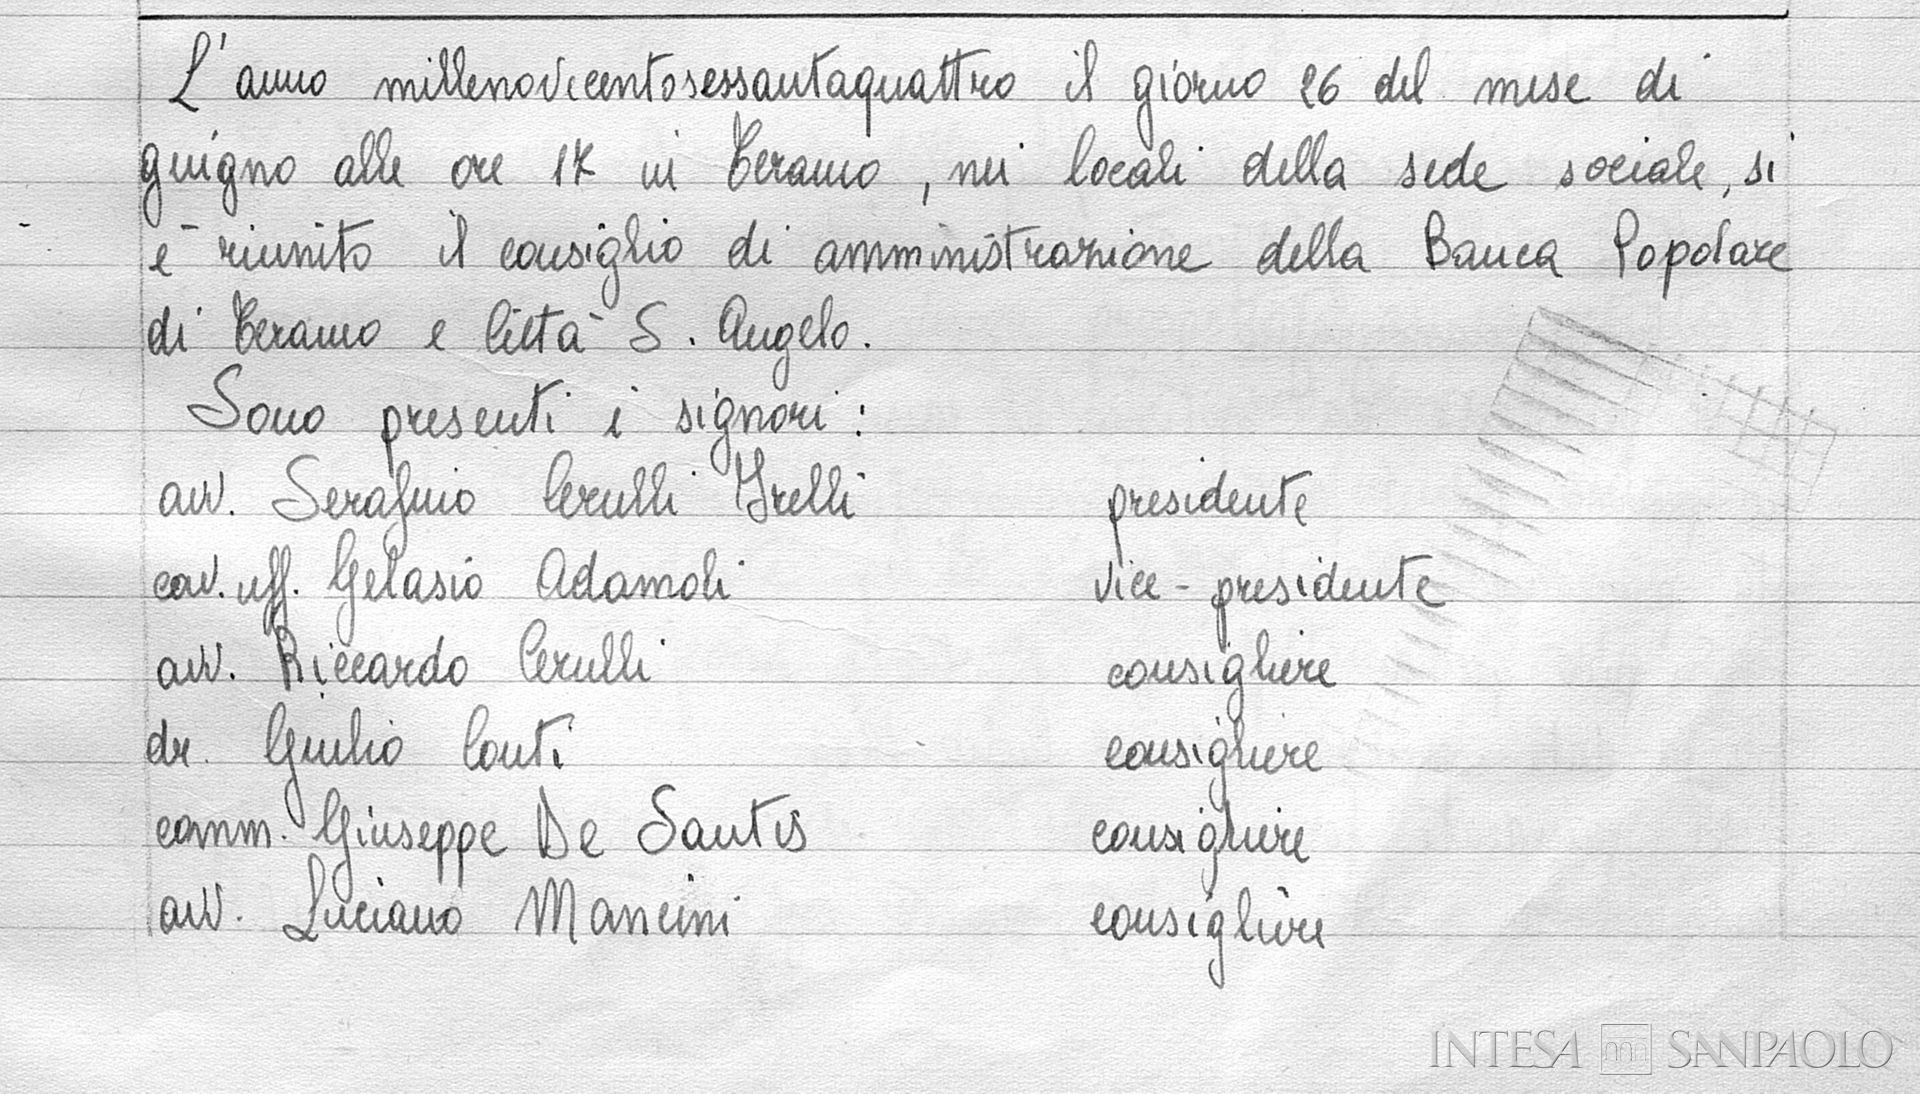 L'anno millenovecentosessantaquattro il giorno 26 del mese di
giugno alle ore 17 in Teramo, nei locali della sede sociale, si
è riunito il consiglio di amministrazione della Banca Popolare
di Teramo e Città S. Angelo.
Sono presenti i signori:
avv. Serafino Cerulli Irelli presidente
cav. uff. Gelasio Adamoli vice-presidente
avv. Riccardo Cerulli consigliere
dr. Giulio Conti consigliere
comm. Giuseppe De Santis consigliere
avv. Luciano Mancini consigliere
INTESA SANPAOLO